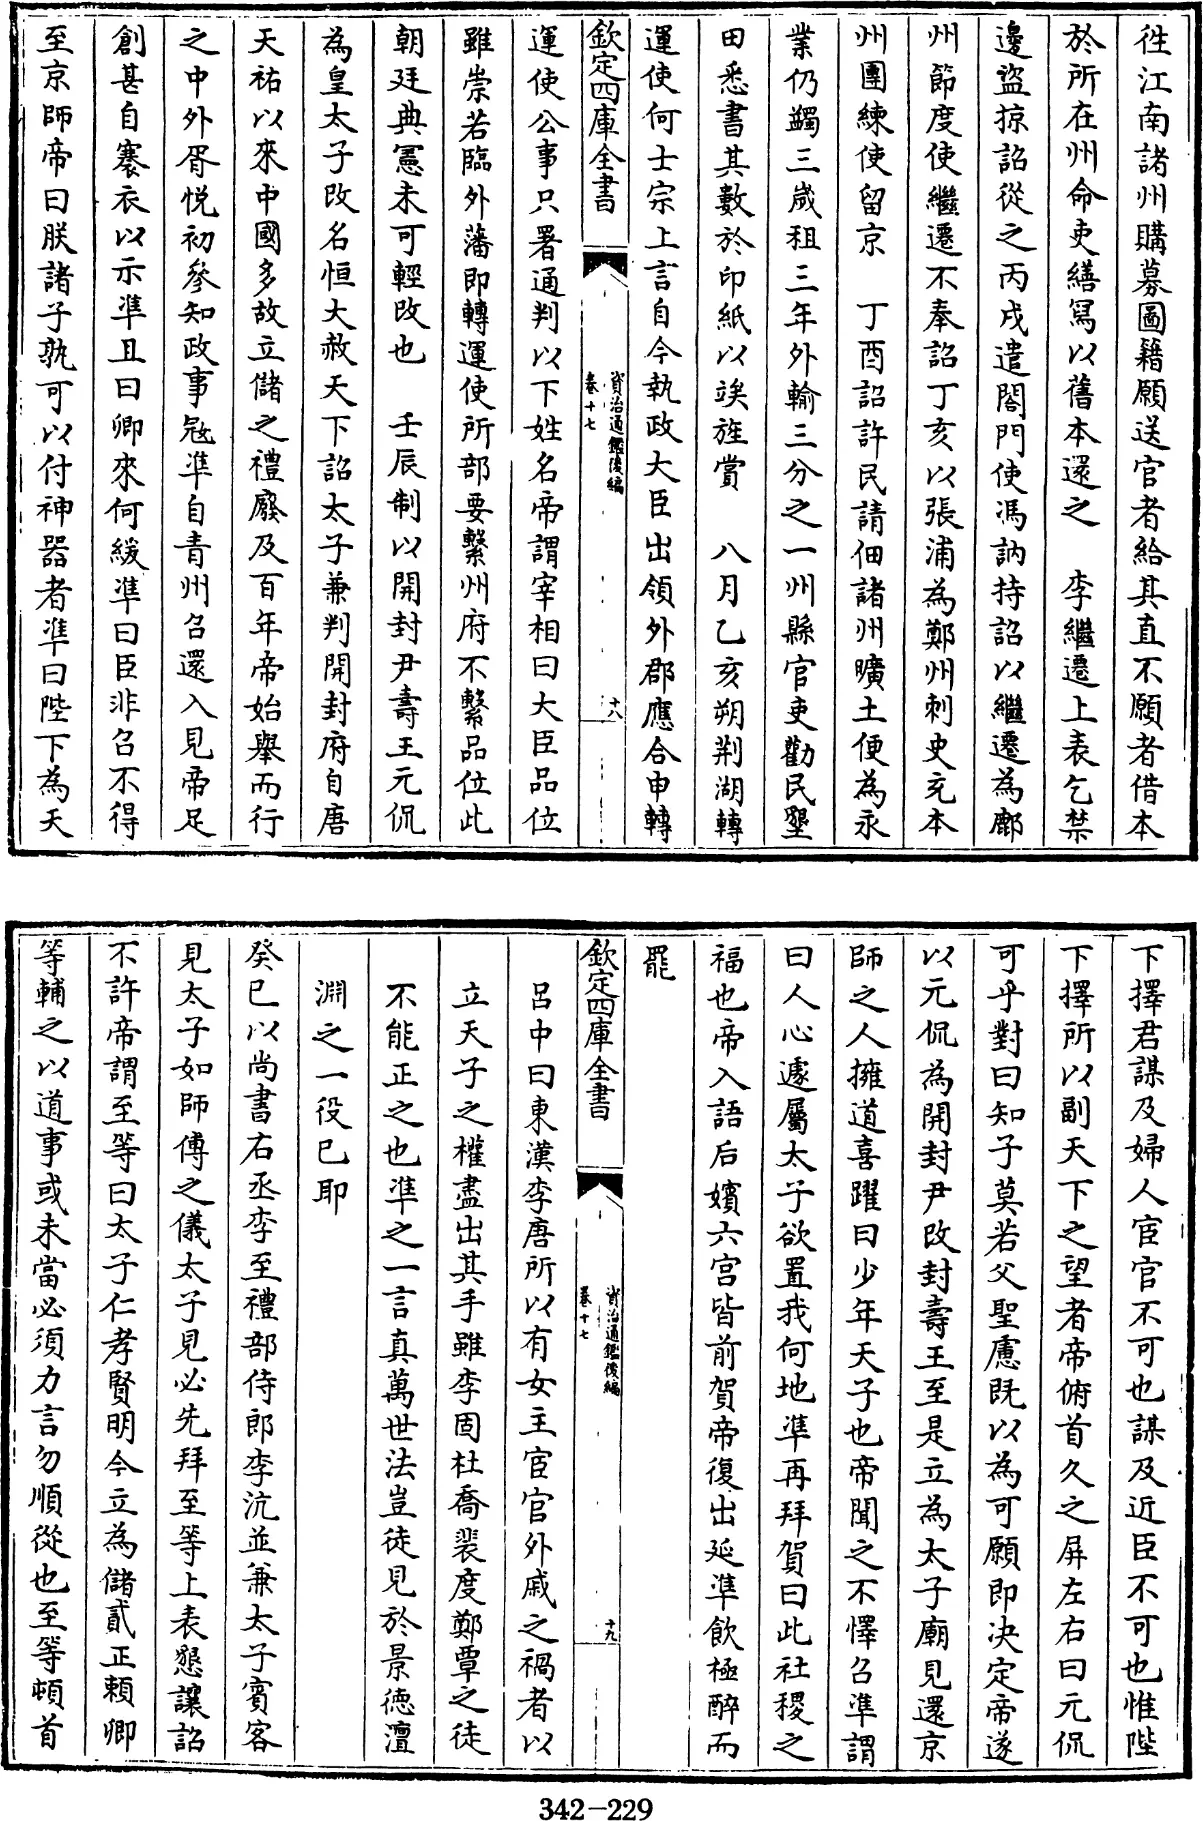 徃江南諸州購募圖籍願送官者給其直不願者借本
於所在州命吏繕冩以舊本還之　李繼遷上表乞禁
邊盜掠詔從之丙戌遣閤門使馮訥持詔以繼遷為鄜
州節度使繼遷不奉詔丁亥以張浦為鄭州刺史充本
州團練使留京　丁酉詔許民請佃諸州曠土便為永
業仍蠲三歲租三年外輸三分之一州縣官吏勸民墾
田悉書其數於印紙以竢旌賞　八月乙亥朔荆湖轉
運使何士宗上言自今執政大臣出領外郡應合申轉
欽定四庫全書
資治通鑑後編
卷十七
十八
運使公事只署通判以下姓名帝謂宰相曰大臣品位
雖崇若臨外藩即轉運使所部要繫州府不繫品位此
朝廷典憲未可輕改也　壬辰制以開封尹壽王元侃
為皇太子改名恒大赦天下詔太子兼判開封府自唐
天祐以來中國多故立儲之禮廢及百年帝始舉而行
之中外胥悅初參知政事宼準自青州召還入見帝足
創甚自褰衣以示準且曰卿來何緩準曰臣非召不得
至京師帝曰朕諸子孰可以付神器者準曰陛下為天
下擇君謀及婦人宦官不可也謀及近臣不可也惟陛
下擇所以副天下之望者帝俯首久之屏左右曰元侃
可乎對曰知子莫若父聖慮既以為可願即决定帝遂
以元侃為開封尹改封壽王至是立為太子廟見還京
師之人擁道喜躍曰少年天子也帝聞之不懌召準謂
曰人心遽屬太子欲置我何地準再拜賀曰此社稷之
福也帝入語后嬪六宮皆前賀帝復出延準飲極醉而
罷
欽定四庫全書
資治通鑑後編
卷十七
十九
呂中曰東漢李唐所以有女主宦官外戚之禍者以
立天子之權盡出其手雖李固杜喬裴度鄭覃之徒
不能正之也準之一言真萬世法豈徒見於景德澶
淵之一役已耶
癸巳以尚書右丞李至禮部侍郎李沆並兼太子賓客
見太子如師傅之儀太子見必先拜至等上表懇讓詔
不許帝謂至等曰太子仁孝賢明今立為儲貳正賴卿
等輔之以道事或未當必須力言勿順從也至等頓首
342-229